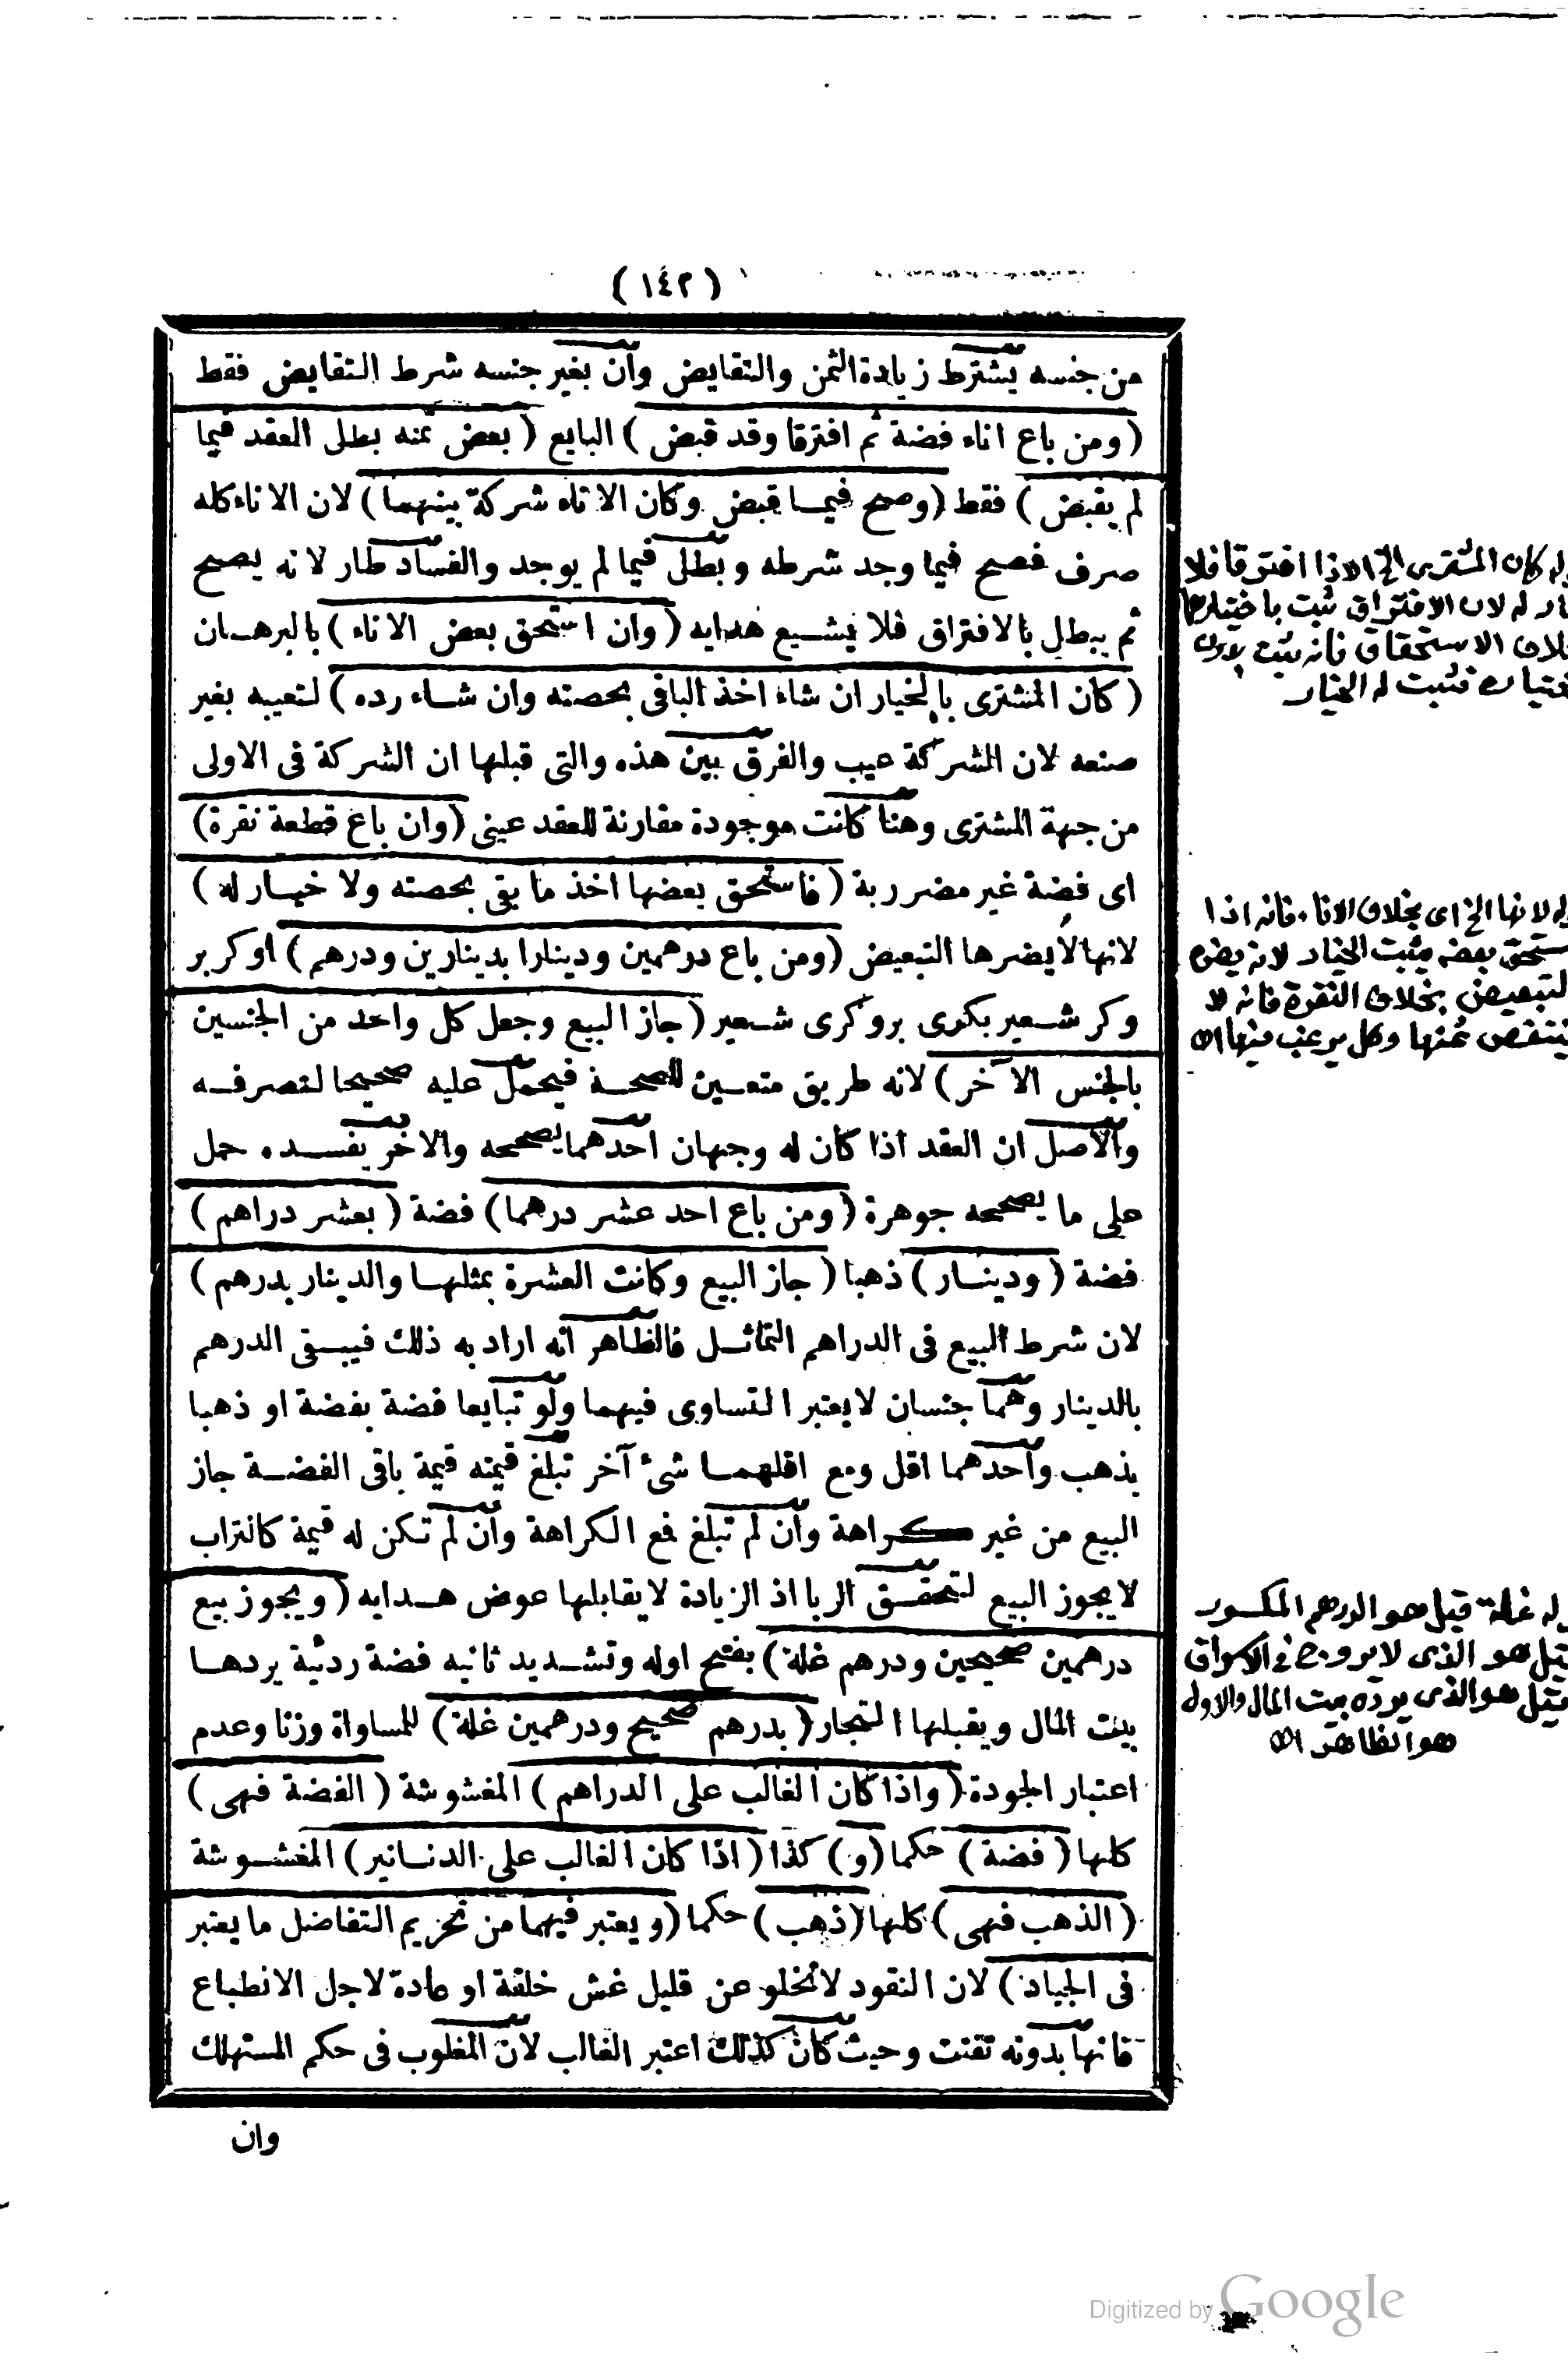 (١٤٢)
من جنسه يشترط زيادة الثمن والتقابض وان بغير جنسه شرط التقابض فقط
(ومن باع اناء فضة ثم افترقا وقد قبض) البايع (بعض ثمنه بطل العقد فيما
لم يقبض) فقط (وصح فيما قبض وكان الاناء شركة بينهما) لان الاناء كله
صرف فصح فيما وجد شرطه وبطل فيما لم يوجد والفساد طار لانه يصح
ثم يبطل بالافتراق فلا يشيع هدايه (وان استحق بعض الاناء) بالبرهان
(كان المشترى بالخيار ان شاء اخذ الباقى بحصته وان شاء رده) لتعيبه بغير
صنعه لان الشركة عيب والفرق بين هذه والتى قبلها ان الشركة فى الاولى
من جهة المشترى وهنا كانت موجودة مقارنة للعقد عينى (وان باع قطعة نقرة)
اى فضة غير مضروبة (فاستحق بعضها اخذ ما بقى بحصته ولا خيار له)
لانها لا يضرها التبعيض (ومن باع درهمين ودينارا بدينارين ودرهم) او كر بر
وكر شعير بكرى بر وكرى شعير (جاز البيع وجعل كل واحد من الجنسين
بالجنس الآخر) لانه طريق متعين للصحة فيحمل عليه صحيحا لتصرفه
والاصل ان العقد اذا كان له وجهان احدهما يصححه والاخر يفسده حمل
على ما يصححه جوهرة (ومن باع احد عشر درهما) فضة (بعشر دراهم)
فضة (ودينار) ذهبا (جاز البيع وكانت العشرة بمثلها والدينار بدرهم)
لان شرط البيع فى الدراهم التماثل فالظاهر انه اراد به ذلك فيبقى الدرهم
بالدينار وهما جنسان لا يعتبر التساوى فيهما ولو تبايعا فضة بفضة او ذهبا
بذهب واحدهما اقل ومع اقلهما شىء آخر تبلغ قيمته قيمة باقى الفضة جاز
البيع من غير كراهة وان لم تبلغ فمع الكراهة وان لم تكن له قيمة كالتراب
لا يجوز البيع لتحقق الربا اذ الزيادة لا يقابلها عوض هدايه (ويجوز بيع
درهمين صحيحين ودرهم غلة) بفتح اوله وتشديد ثانيه فضة رديئة يردها
بيت المال ويقبلها التجار (بدرهم صحيح ودرهمين غلة) للمساواة وزنا وعدم
اعتبار الجودة (واذا كان الغالب على الدراهم) المغشوشة (الفضة فهى)
كلها (فضة) حكما (و) كذا (اذا كان الغالب على الدنانير) المغشوشة
(الذهب فهى) كلها (ذهب) حكما (ويعتبر فيهما من تحريم التفاضل ما يعتبر
فى الجياد) لان النقود لا تخلو عن قليل غش خلقة او عادة لاجل الانطباع
فانها بدونه تتفتت وحيث كان كذلك اعتبر الغالب لان المغلوب فى حكم المستهلك
وان
كان المشترى الخ الا اذا افترقا فلا
له لان الافتراق ثبت باختيارهما
الاستحقاق فانه يثبت بدون
فثبت له الخيار
لانها الخ اى بخلاف الاناء فانه اذا
بعضه يثبت الخيار لانه يضره
التبعيض بخلاف النقرة فانه لا
ينتقص ثمنها وكل يرغب فيها اه
غلة قيل هو الدرهم المكسور
قيل هو الذى لا يروج فى الاسواق
قيل هو الذى يرده بيت المال والاول
هو الظاهر اه
Digitized by Google